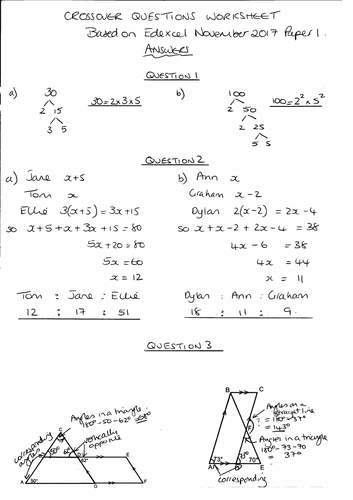 CROSSOVER QUESTIONS WORKSHEET
Based on Edexcel November 2017 Paper 1.
ANSWERS
QUESTION 1
a) 30
2 15
3 5
30 = 2 x 3 x 5
b) 100
2 50
2 25
5 5
100 = 2² x 5²
QUESTION 2
a) Jane x+5
Tom x
Ellie 3(x+5) = 3x+15
so x+5+x+3x+15=80
5x+20=80
5x=60
x=12
Tom : Jane : Ellie
12 : 17 : 51
b) Ann x
Graham x-2
Dylan 2(x-2) = 2x-4
so x+x-2+2x-4=38
4x-6=38
4x=44
x=11
Dylan : Ann : Graham
18 : 11 : 9.
QUESTION 3
Angles in a triangle
180°-50-62°=
vertically
opposite
corresponding
angles
B C
Angles on a
straight line
= 180°-37°
= 143°
Angles in a triangle
180°-73-70
= 37°
73° 73° 70°
A D E
corresponding